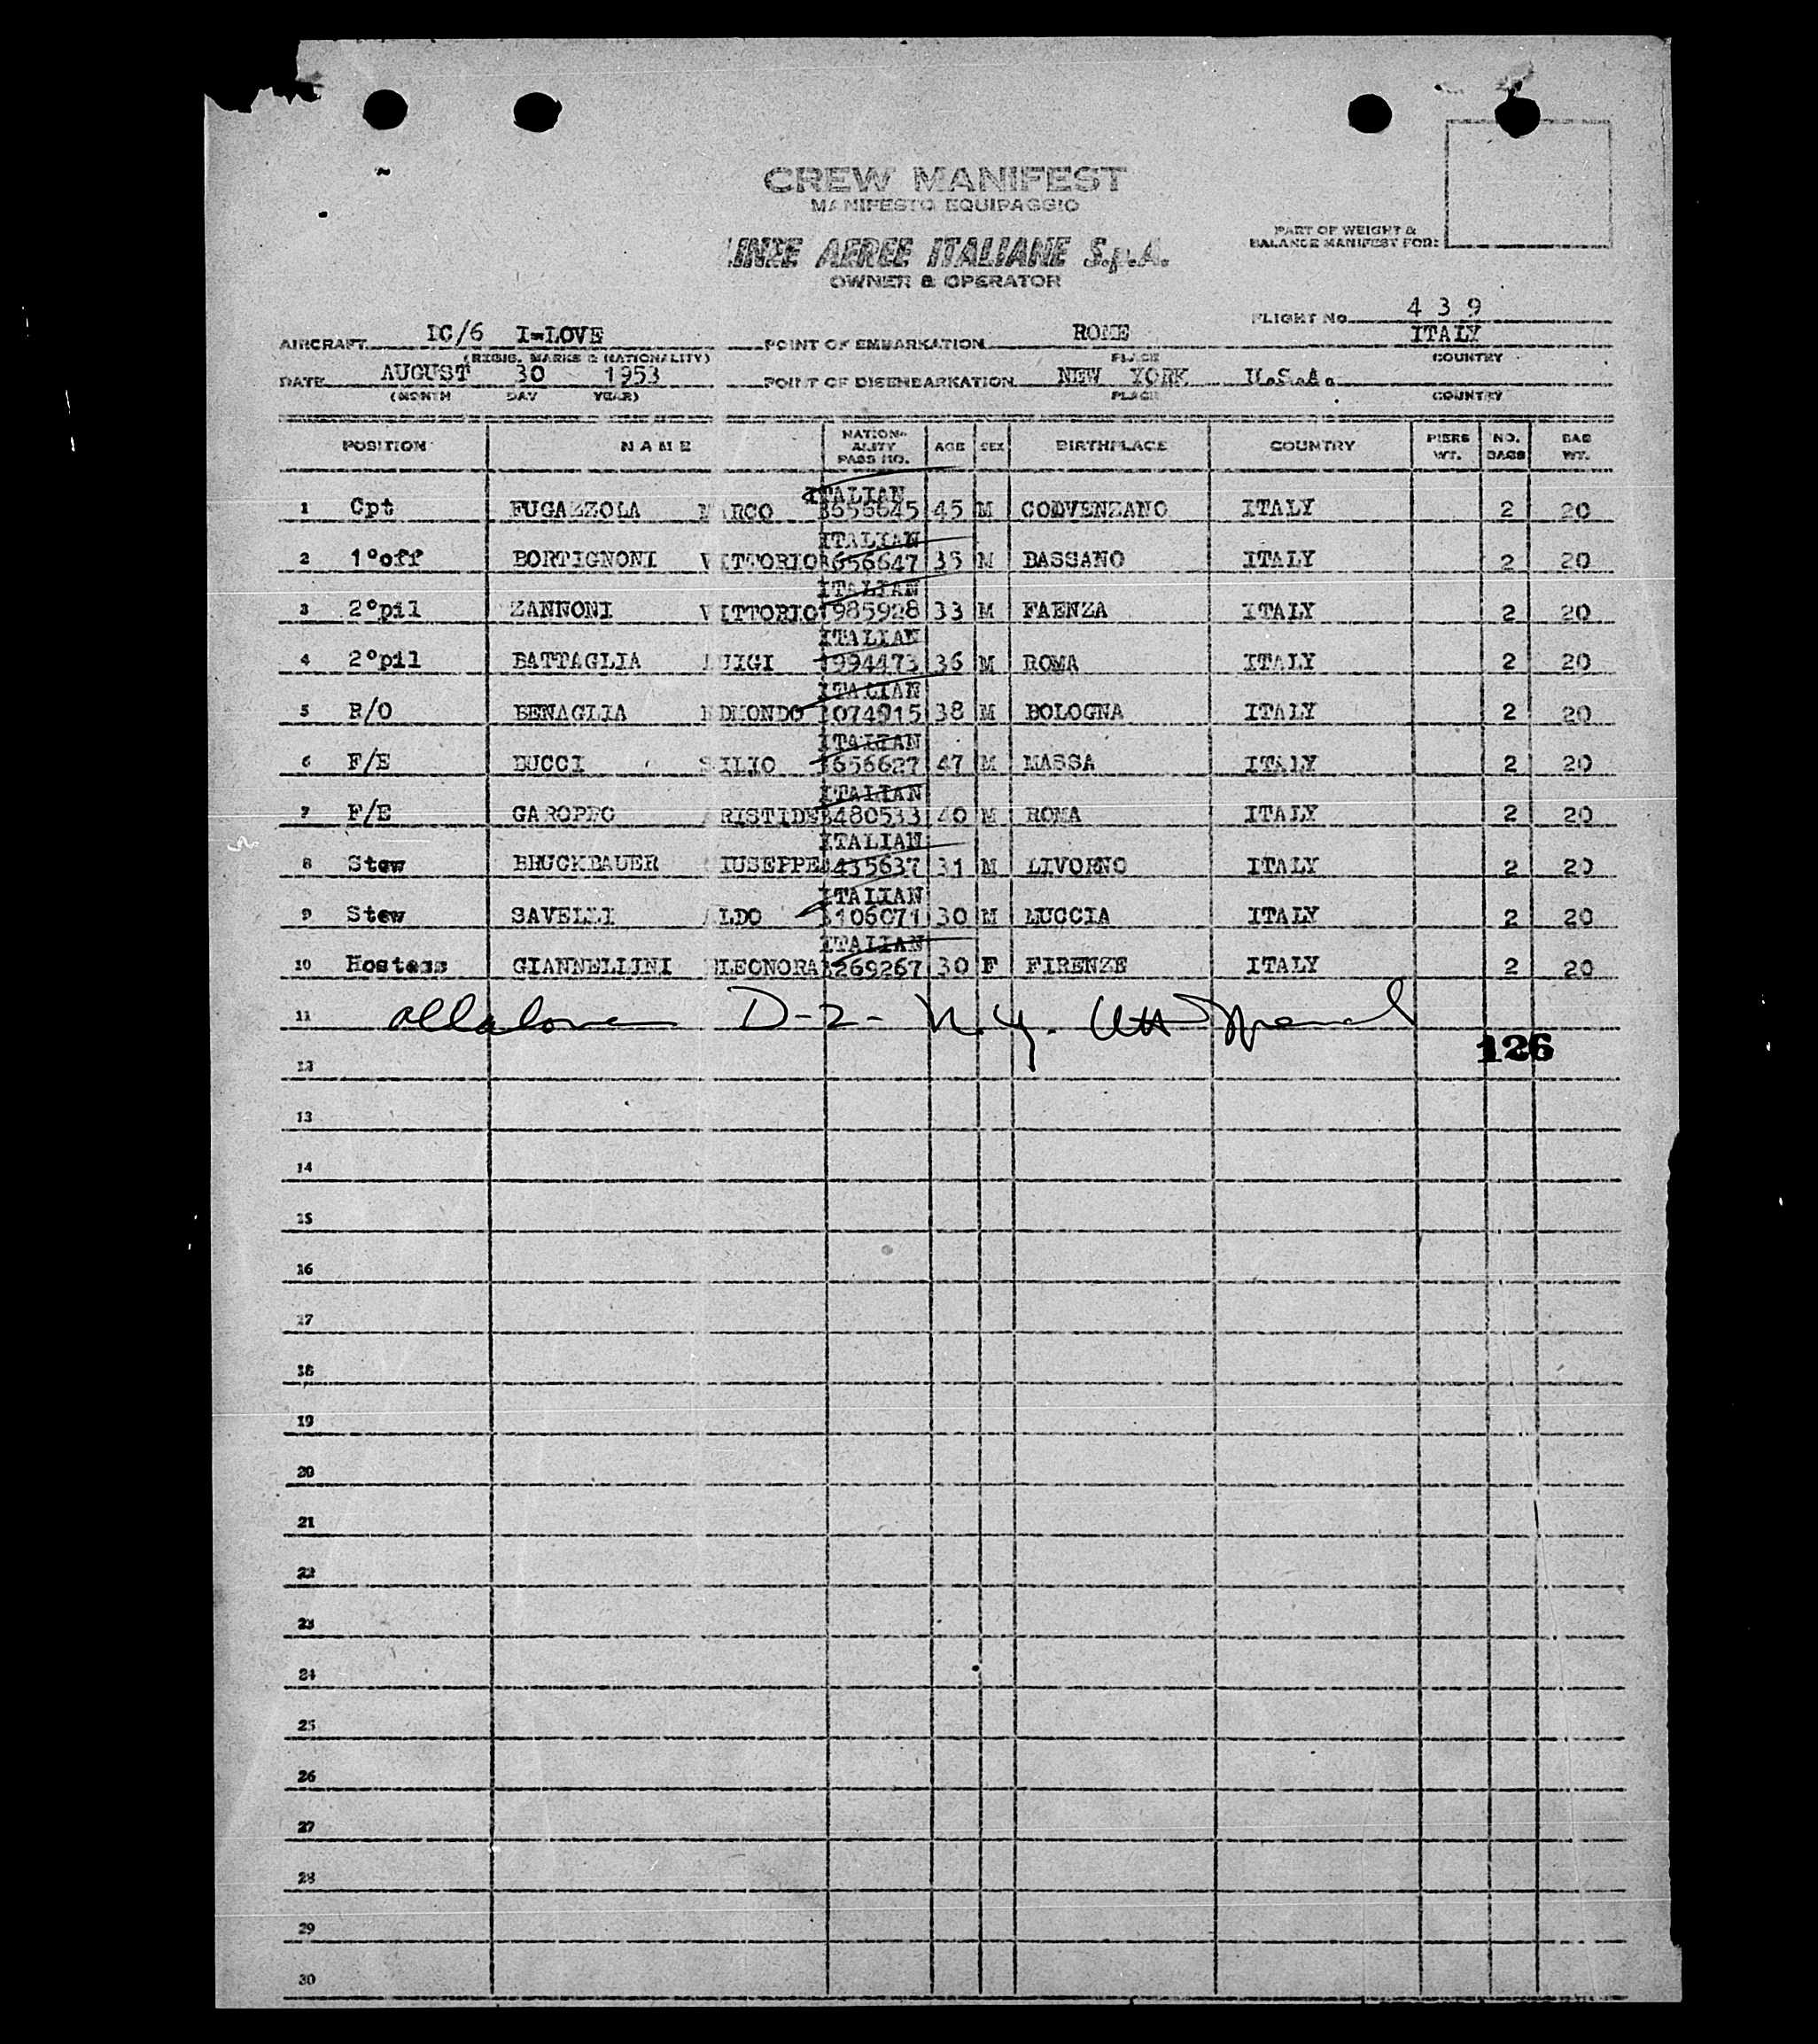 CREW MANIFEST
MANIFESTO EQUIPAGGIO
LINEE AEREE ITALIANE S.p.A.
OWNER & OPERATOR
PART OF WEIGHT &
BALANCE MANIFEST FOR:
FLIGHT No. 4 3 9
AIRCRAFT I-LOVE POINT OF EMBARKATION ROME ITALY
(REGIS. MARKS & NATIONALITY) PLACE COUNTRY
DATE AUGUST 30 1953 POINT OF DISEMBARKATION NEW YORK U.S.A.
(MONTH DAY YEAR) PLACE COUNTRY
POSITION NAME NATION-ALITY PASS NO. AGE SEX BIRTHPLACE COUNTRY PIERS WT. NO. BAGS BAG WT.
ITALIAN
1 Cpt FUGAZZOLA MARCO 656645 45 M ITALY 2 20
ITALIAN
2 1°off BORTIGNONI VITTORIO 656647 35 M BASSANO ITALY 2 20
ITALIAN
3 2°pil ZANNONI VITTORIO 985928 33 M FAENZA ITALY 2 20
ITALIAN
4 2°pil BATTAGLIA LUIGI 994473 36 M ROMA ITALY 2 20
ITALIAN
5 R/O BENAGLIA EDMONDO 074915 38 M BOLOGNA ITALY 2 20
ITALIAN
6 F/E DUCCI SILIO 656627 47 M MASSA ITALY 2 20
ITALIAN
7 F/E GAROPPO ARISTIDE 480533 40 M ROMA ITALY 2 20
ITALIAN
8 Stew BRUCKBAUER GIUSEPPE 435637 31 M LIVORNO ITALY 2 20
ITALIAN
9 Stew SAVELLI ALDO 106071 30 M MUCCIA ITALY 2 20
ITALIAN
10 Hostess GIANNELLINI ELEONORA 269267 30 F FIRENZE ITALY 2 20
11 D-2- N.Y.
126
12
13
14
15
16
17
18
19
20
21
22
23
24
25
26
27
28
29
30